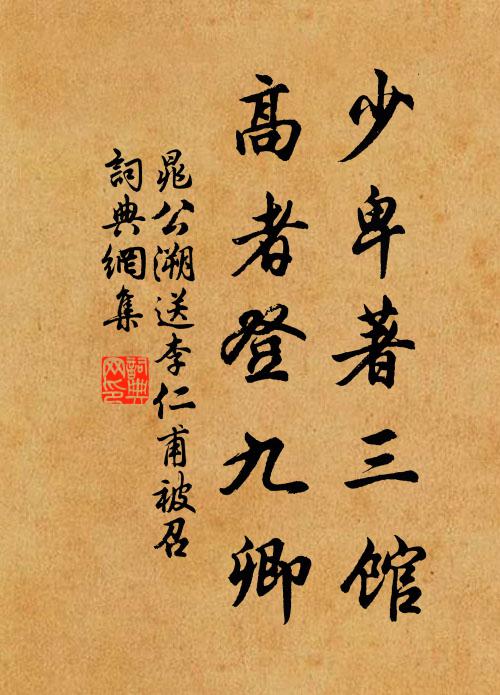 少卑著三館
高者登九卿
晁公溯送李仁甫被召
詞典網集
詞典
网印